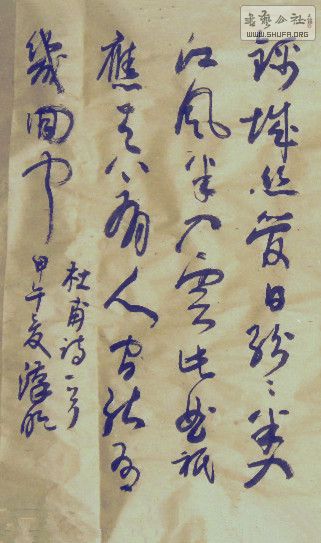 錦城丝管日紛〻半入
江風半入雲此曲祇
應天上有人間能得
幾回闻
杜甫詩一首
甲午夏
書藝公社
WWW.SHUFA.ORG